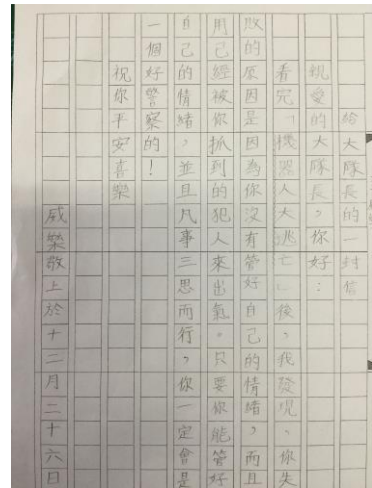 給大隊長的一封信
親愛的大隊長，你好：
看完「機器人大逃亡」後，我發現、你失
敗的原因是因為你沒有管好自己的情緒，而且
用己經被你抓到的犯人來出氣。只要你能管好
自己的情緒，並且凡事三思而行，你一定會是
一個好警察的！
祝你平安喜樂
威樂敬上於十二月二十六日